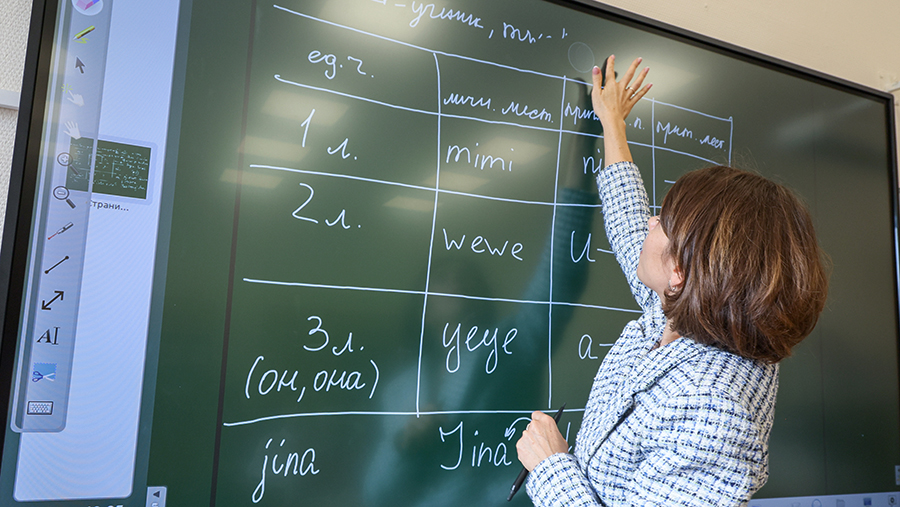 -ученик,
ед.ч.
личн. мест.
прит. мест.
1 л.
mimi
ni
2 л.
wewe
u-
3 л.
(он, она)
yeye
a-
jina
Jina
страни...
AI